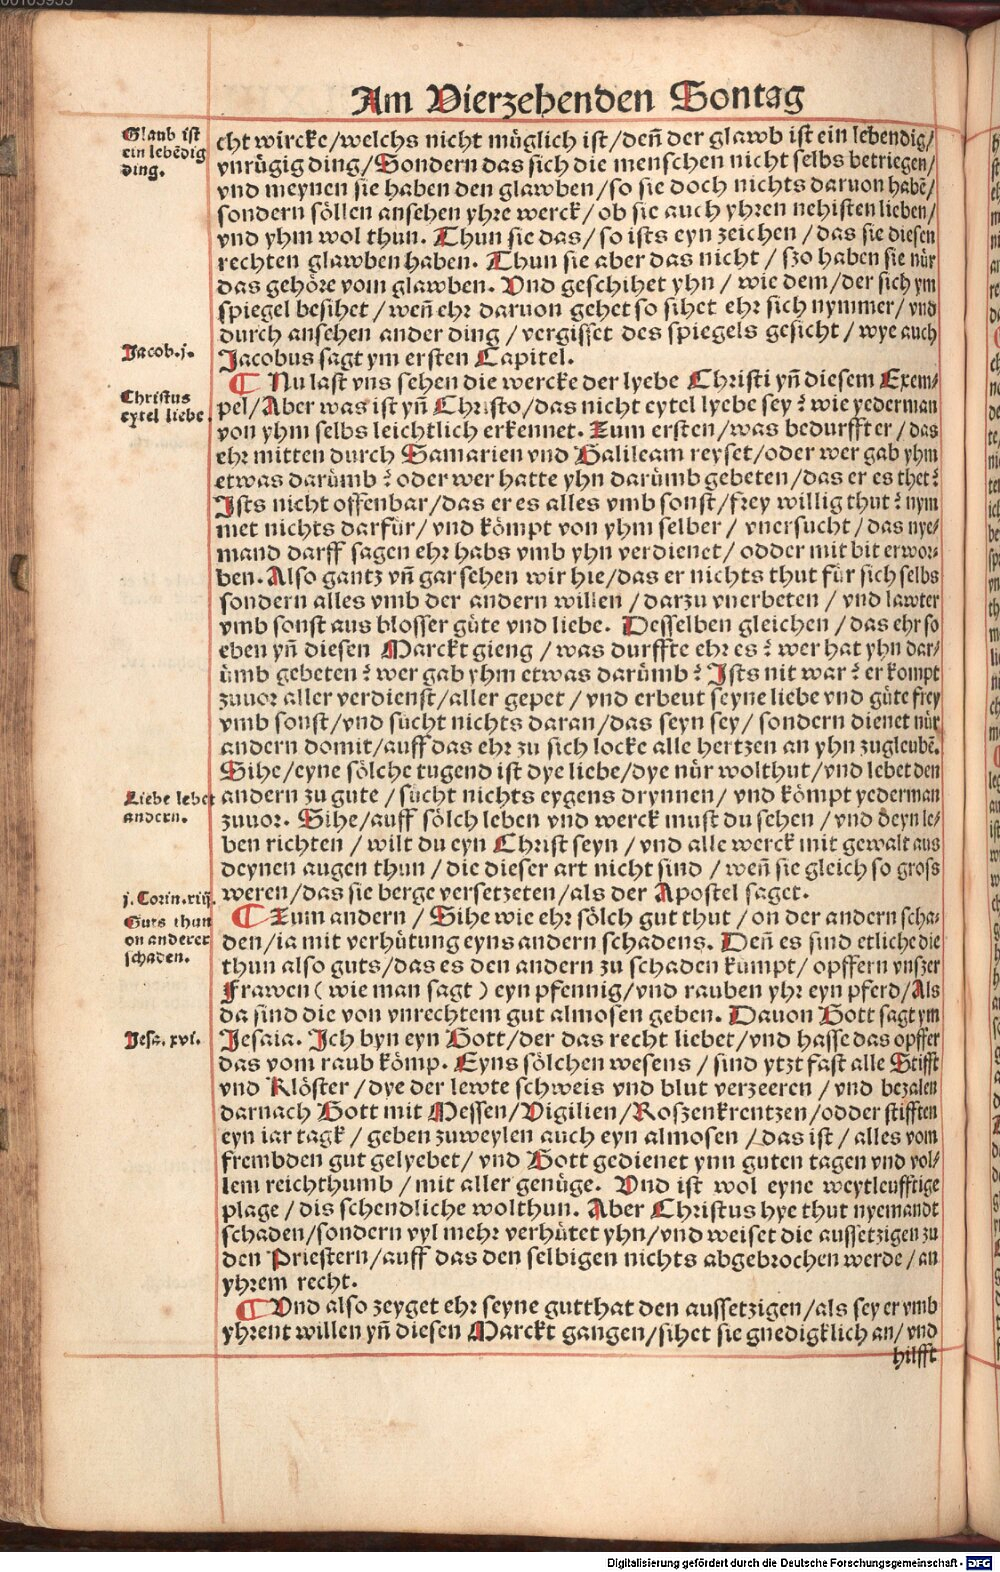 Am Vierzehenden Sontag
Glaub ist
ein lebẽdig
ding.
cht wircke/welchs nicht müglich ist/deñ der glawb ist ein lebendig/
vnrügig ding/Sondern das sich die menschen nicht selbs betriegen/
vnd meynen sie haben den glawben/so sie doch nichts daruon habẽ/
sondern söllen ansehen yhre werck/ob sie auch yhren nehisten lieben/
vnd yhm wol thun. Thun sie das/so ists eyn zeichen/das sie diesen
rechten glawben haben. Thun sie aber das nicht/szo haben sie nůr
das gehöre vom glawben. Vnd geschihet yhn/wie dem/der sich ym
spiegel besihet/weñ ehr daruon gehet so sihet ehr sich nymmer/vnd
durch ansehen ander ding/vergisset des spiegels gesicht/wye auch
Jacob.j.
Jacobus sagt ym ersten Capitel.
Christus
eytel liebe.
¶ Nu last vns sehen die wercke der lyebe Christi yñ diesem Exem-
pel/Aber was ist yñ Christo/das nicht eytel lyebe sey? wie yederman
von yhm selbs leichtlich erkennet. Zum ersten/was bedurfft er/das
ehr mitten durch Samarien vnd Galileam reyset/oder wer gab yhm
etwas darümb? oder wer hatte yhn darümb gebeten/das er es thet?
Ists nicht offenbar/das er es alles vmb sonst/frey willig thut? nym
met nichts darfür/vnd kömpt von yhm selber/vnersucht/das nye-
mand darff sagen ehr habs vmb yhn verdienet/odder mit bit erwor-
ben. Also gantz vñ gar sehen wir hie/das er nichts thut für sich selbs
sondern alles vmb der andern willen/darzu vnerbeten/vnd lawter
vmb sonst aus blosser güte vnd liebe. Desselben gleichen/das ehr so
eben yñ diesen Marckt gieng/was durffte ehr es? wer hat yhn dar-
ümb gebeten? wer gab yhm etwas darümb? Ists nit war? er kompt
zuuor aller verdienst/aller gepet/vnd erbeut seyne liebe vnd güte frey
vmb sonst/vnd sücht nichts daran/das seyn sey/sondern dienet nůr
andern domit/auff das ehr zu sich locke alle hertzen an yhn zugleubẽ.
Sihe/eyne sölche tugend ist dye liebe/dye nůr wolthut/vnd lebet den
Liebe lebet
andern.
andern zu gute/sücht nichts eygens drynnen/vnd kömpt yederman
zuuor. Sihe/auff sölch leben vnd werck must du sehen/vnd deyn le-
ben richten/wilt du eyn Christ seyn/vnd alle werck mit gewalt aus
deynen augen thun/die dieser art nicht sind/weñ sie gleich so gross
j. Corin.xiij.
weren/das sie berge versetzeten/als der Apostel saget.
Guts thun
on anderer
schaden.
¶ Zum andern/Sihe wie ehr sölch gut thut/on der andern scha-
den/ia mit verhütung eyns andern schadens. Deñ es sind etliche die
thun also guts/das es den andern zu schaden kümpt/opffern vnszer
Frawen (wie man sagt) eyn pfennig/vnd rauben yhr eyn pferd/Als
da sind die von vnrechtem gut almosen geben. Dauon Gott sagt ym
Jesa. xvi.
Jesaia. Ich byn eyn Gott/der das recht liebet/vnd hasse das opffer
das vom raub kömp. Eyns sölchen wesens/sind ytzt fast alle Stifft
vnd Klöster/dye der lewte schweis vnd blut verzeeren/vnd bezalen
darnach Gott mit Messen/Vigilien/Roszenkrentzen/odder stifften
eyn iar tagk/geben zuweylen auch eyn almosen/das ist/alles vom
frembden gut gelyebet/vnd Gott gedienet ynn guten tagen vnd vol-
lem reichthumb/mit aller genüge. Vnd ist wol eyne weytleufftige
plage/dis schendliche wolthun. Aber Christus hye thut nyemandt
schaden/sondern vyl mehr verhütet yhn/vnd weiset die aussetzigen zu
den Priestern/auff das den selbigen nichts abgebrochen werde/an
yhrem recht.
¶ Vnd also zeyget ehr seyne gutthat den aussetzigen/als sey er vmb
yhrent willen yñ diesen Marckt gangen/sihet sie gnedigklich an/vnd
hilfft
Digitalisierung gefördert durch die Deutsche Forschungsgemeinschaft - DFG